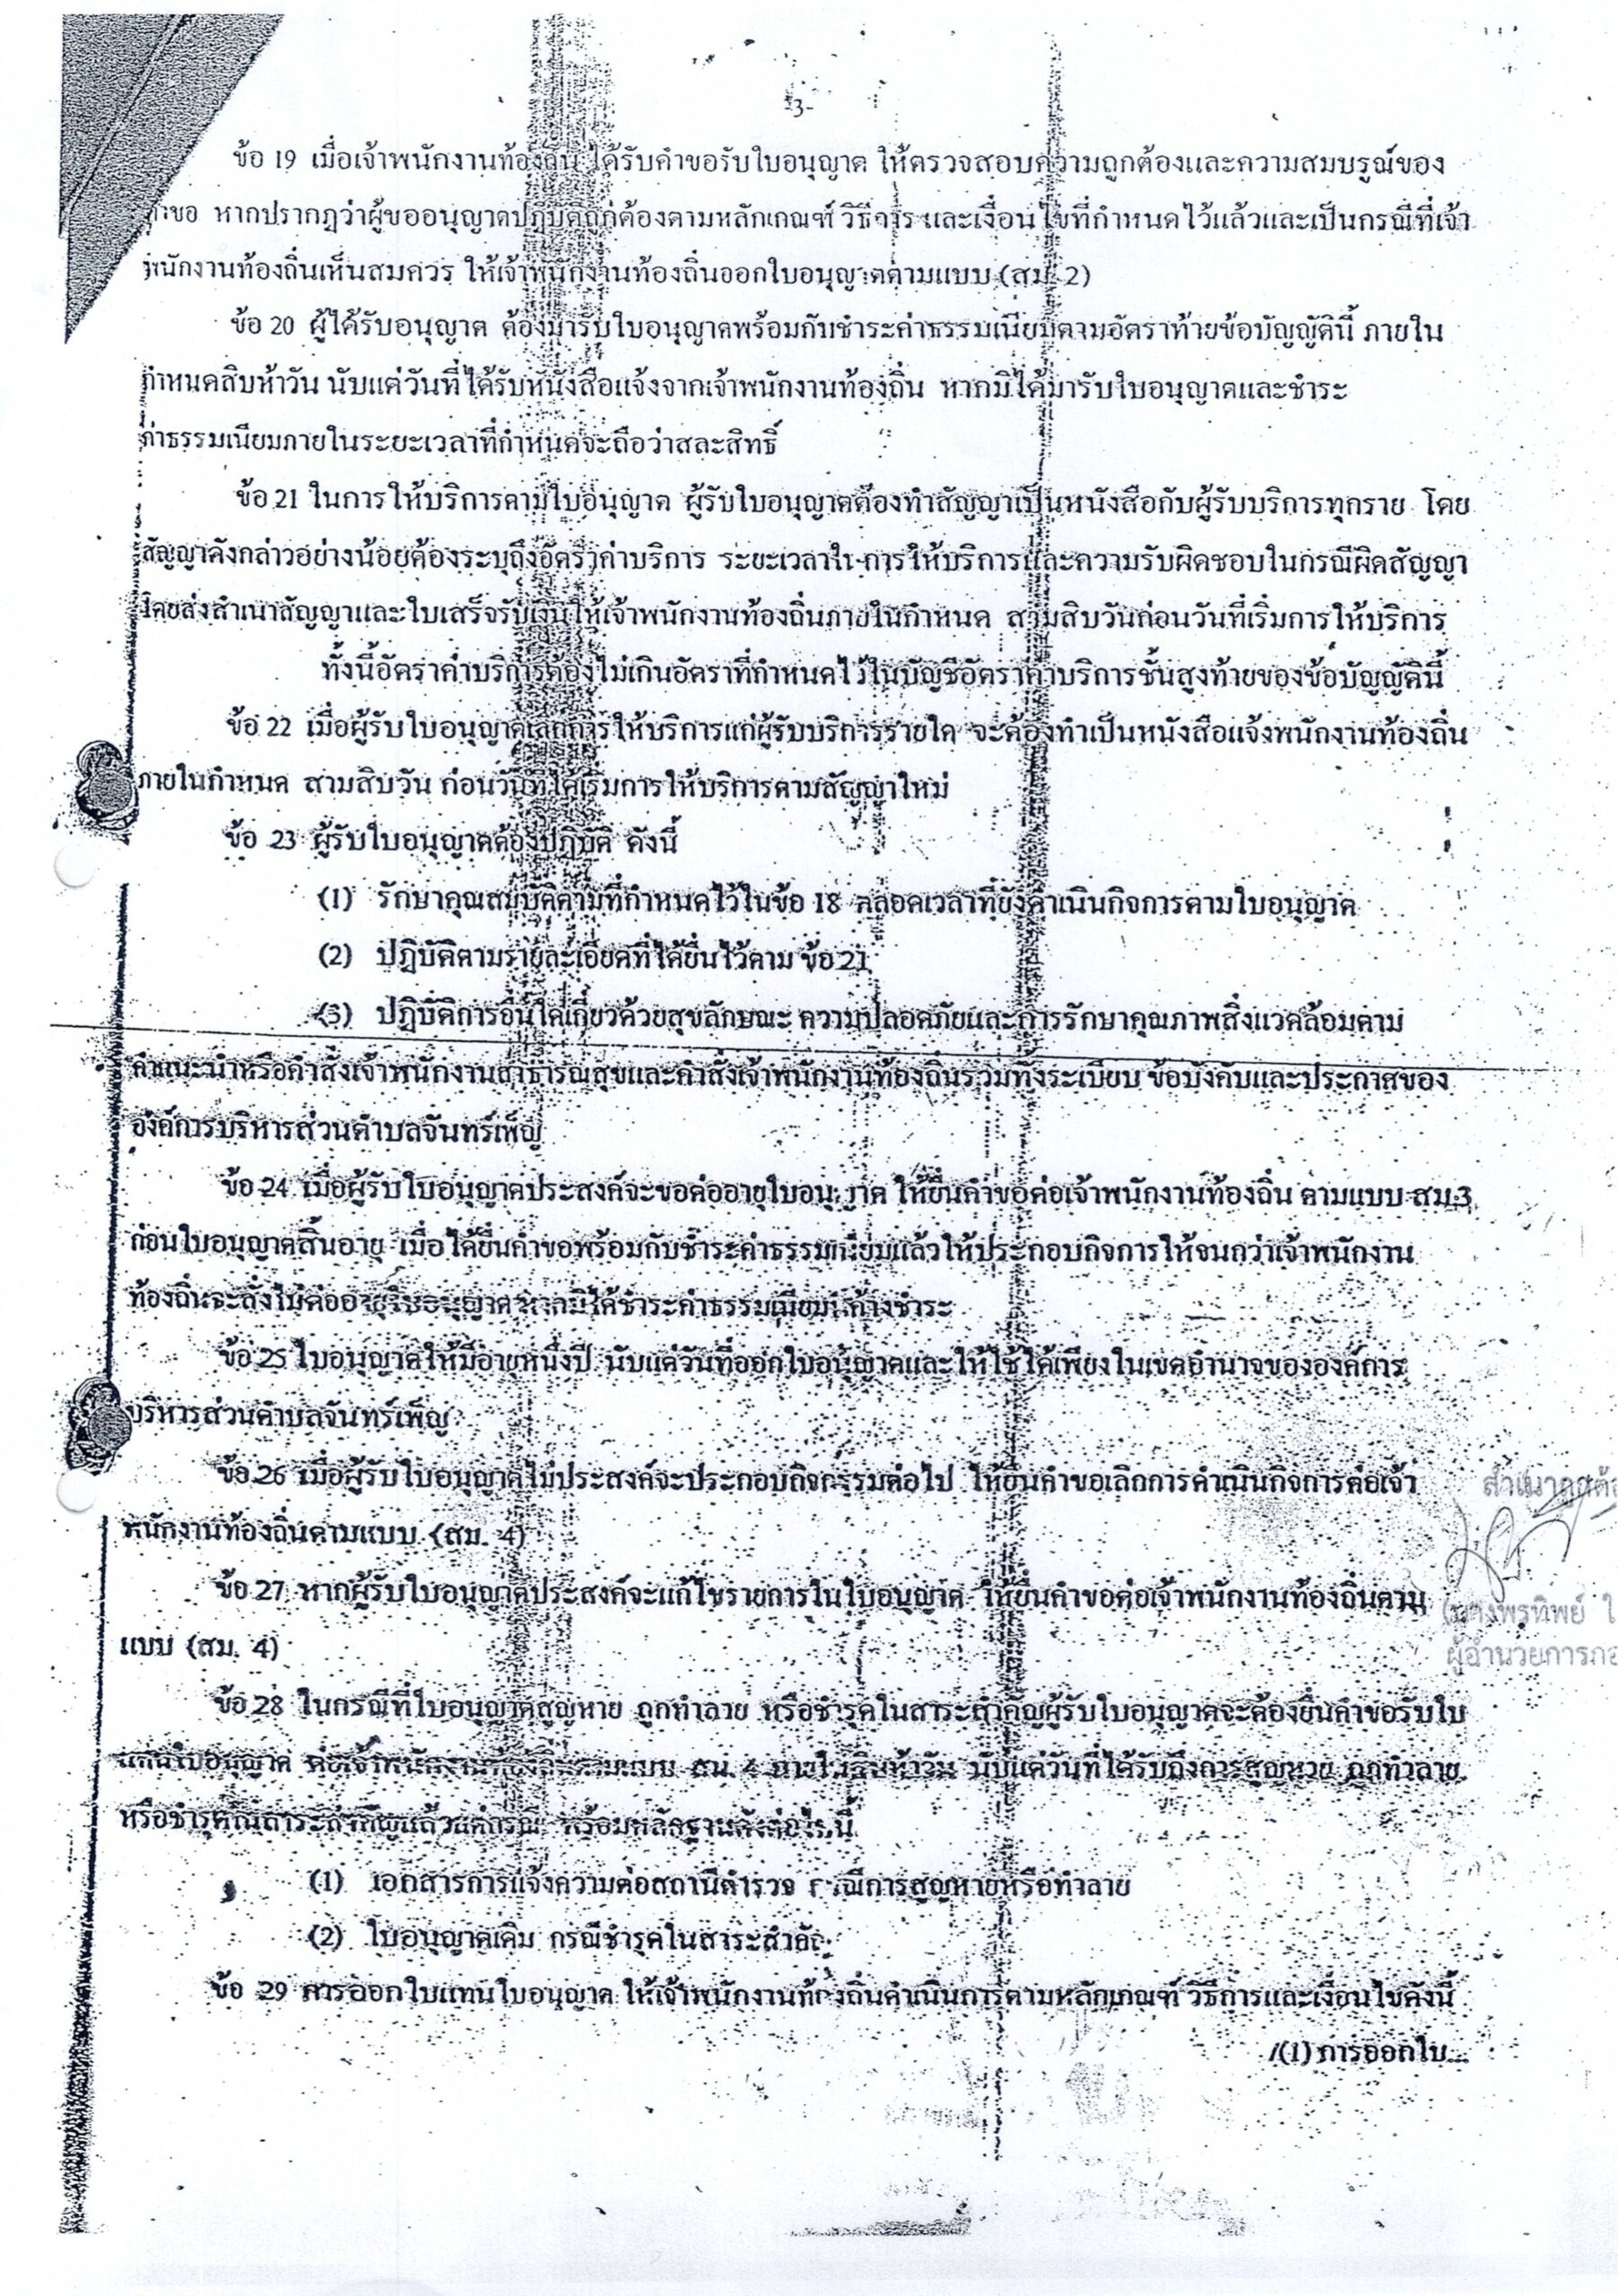 -3-
ข้อ 19 เมื่อเจ้าพนักงานท้องถิ่น ได้รับคำขอรับใบอนุญาต ให้ตรวจสอบความถูกต้องและความสมบรูณ์ของ
คำขอ หากปรากฏว่าผู้ขออนุญาตปฏิบัติถูกต้องตามหลักเกณฑ์ วิธีการ และเงื่อนไขที่กำหนดไว้แล้วและเป็นกรณีที่เจ้า
พนักงานท้องถิ่นเห็นสมควร ให้เจ้าพนักงานท้องถิ่นออกใบอนุญาตตามแบบ (สม. 2)
ข้อ 20 ผู้ได้รับอนุญาต ต้องมารับใบอนุญาตพร้อมกับชำระค่าธรรมเนียมตามอัตราท้ายข้อบัญญัตินี้ ภายใน
กำหนดสิบห้าวัน นับแต่วันที่ได้รับหนังสือแจ้งจากเจ้าพนักงานท้องถิ่น หากมิได้มารับใบอนุญาตและชำระ
ค่าธรรมเนียมภายในระยะเวลาที่กำหนดจะถือว่าสละสิทธิ์
ข้อ 21 ในการให้บริการตามใบอนุญาต ผู้รับใบอนุญาตต้องทำสัญญาเป็นหนังสือกับผู้รับบริการทุกราย โดย
สัญญาดังกล่าวอย่างน้อยต้องระบุถึงอัตราค่าบริการ ระยะเวลาใน การให้บริการและความรับผิดชอบในกรณีผิดสัญญา
โดยส่งสำเนาสัญญาและใบเสร็จรับเงินให้เจ้าพนักงานท้องถิ่นภายในกำหนด สามสิบวันก่อนวันที่เริ่มการให้บริการ
ทั้งนี้อัตราค่าบริการต้องไม่เกินอัตราที่กำหนดไว้ในบัญชีอัตราค่าบริการชั้นสูงท้ายของข้อบัญญัตินี้
ข้อ 22 เมื่อผู้รับใบอนุญาตเลิกการให้บริการแก่ผู้รับบริการรายใด จะต้องทำเป็นหนังสือแจ้งพนักงานท้องถิ่น
ภายในกำหนด สามสิบวัน ก่อนวันที่ได้เริ่มการให้บริการตามสัญญาใหม่
ข้อ 23 ผู้รับใบอนุญาตต้องปฏิบัติ ดังนี้
(1) รักษาคุณสมบัติตามที่กำหนดไว้ในข้อ 18 ตลอดเวลาที่ยังดำเนินกิจการตามใบอนุญาต
(2) ปฏิบัติตามรายละเอียดที่ได้ยื่นไว้ตาม ข้อ 21
(3) ปฏิบัติการอื่นใดเกี่ยวด้วยสุขลักษณะ ความปลอดภัยและการรักษาคุณภาพสิ่งแวดล้อมตาม
คำแนะนำหรือคำสั่งเจ้าพนักงานสาธารณสุขและคำสั่งเจ้าพนักงานท้องถิ่นรวมทั้งระเบียบ ข้อบังคับและประกาศของ
องค์การบริหารส่วนตำบลจันทร์เพ็ญ
ข้อ 24 เมื่อผู้รับใบอนุญาตประสงค์จะขอต่ออายุใบอนุญาต ให้ยื่นคำขอต่อเจ้าพนักงานท้องถิ่น ตามแบบ สม.3
ก่อนใบอนุญาตสิ้นอายุ เมื่อได้ยื่นคำขอพร้อมกับชำระค่าธรรมเนียมแล้วให้ประกอบกิจการให้จนกว่าเจ้าพนักงาน
ท้องถิ่นจะสั่งไม่ต่ออายุใบอนุญาต มิได้ชำระค่าธรรมเนียม ค้างชำระ
ข้อ 25 ใบอนุญาตให้มีอายุหนึ่งปี นับแต่วันที่ออกใบอนุญาตและให้ใช้ได้เพียงในเขตอำนาจขององค์การ
บริหารส่วนตำบลจันทร์เพ็ญ
ข้อ 26 เมื่อผู้รับใบอนุญาตไม่ประสงค์จะประกอบกิจกรรมต่อไป ให้ยื่นคำขอเลิกการดำเนินกิจการต่อเจ้า
พนักงานท้องถิ่นตามแบบ (สม. 4)
ข้อ 27 หากผู้รับใบอนุญาตประสงค์จะแก้ไขรายการในใบอนุญาต ให้ยื่นคำขอต่อเจ้าพนักงานท้องถิ่นตาม
แบบ (สม. 4)
สำเนาถูกต้อ
(นางพรทิพย์
ผู้อำนวยการกอ
ข้อ 28 ในกรณีที่ใบอนุญาตสูญหาย ถูกทำลาย หรือชำรุดในสาระสำคัญผู้รับใบอนุญาตจะต้องยื่นคำขอรับใบ
แทนใบอนุญาต ต่อเจ้าพนักงานท้องถิ่นตามแบบ สม. 4 ภายในสิบห้าวัน นับแต่วันที่ได้รับถึงการสูญหาย ถูกทำลาย
หรือชำรุดในสาระสำคัญแล้วแต่กรณี พร้อมหลักฐานดังต่อไปนี้
(1) เอกสารการแจ้งความต่อสถานีตำรวจ กรณีการสูญหายหรือทำลาย
(2) ใบอนุญาตเดิม กรณีชำรุดในสาระสำคัญ
ข้อ 29 การออกใบแทนใบอนุญาต ให้เจ้าพนักงานท้องถิ่นดำเนินการตามหลักเกณฑ์ วิธีการและเงื่อนไขดังนี้
/(1) การออกใบ...